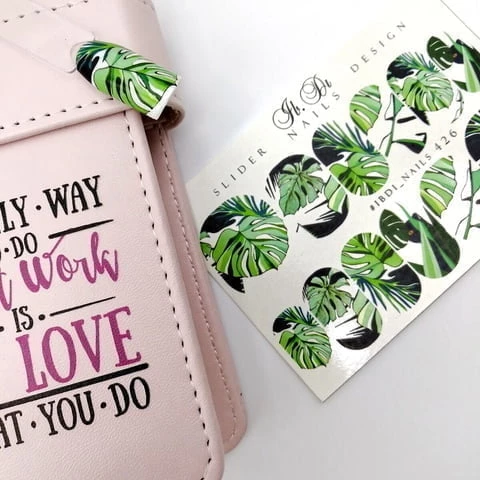 LY · WAY
DO
t Work
IS
LOVE
AT · YOU · DO
SLIDER
Ib.Di
NAILS DESIGN
#IBDI_NAILS 426